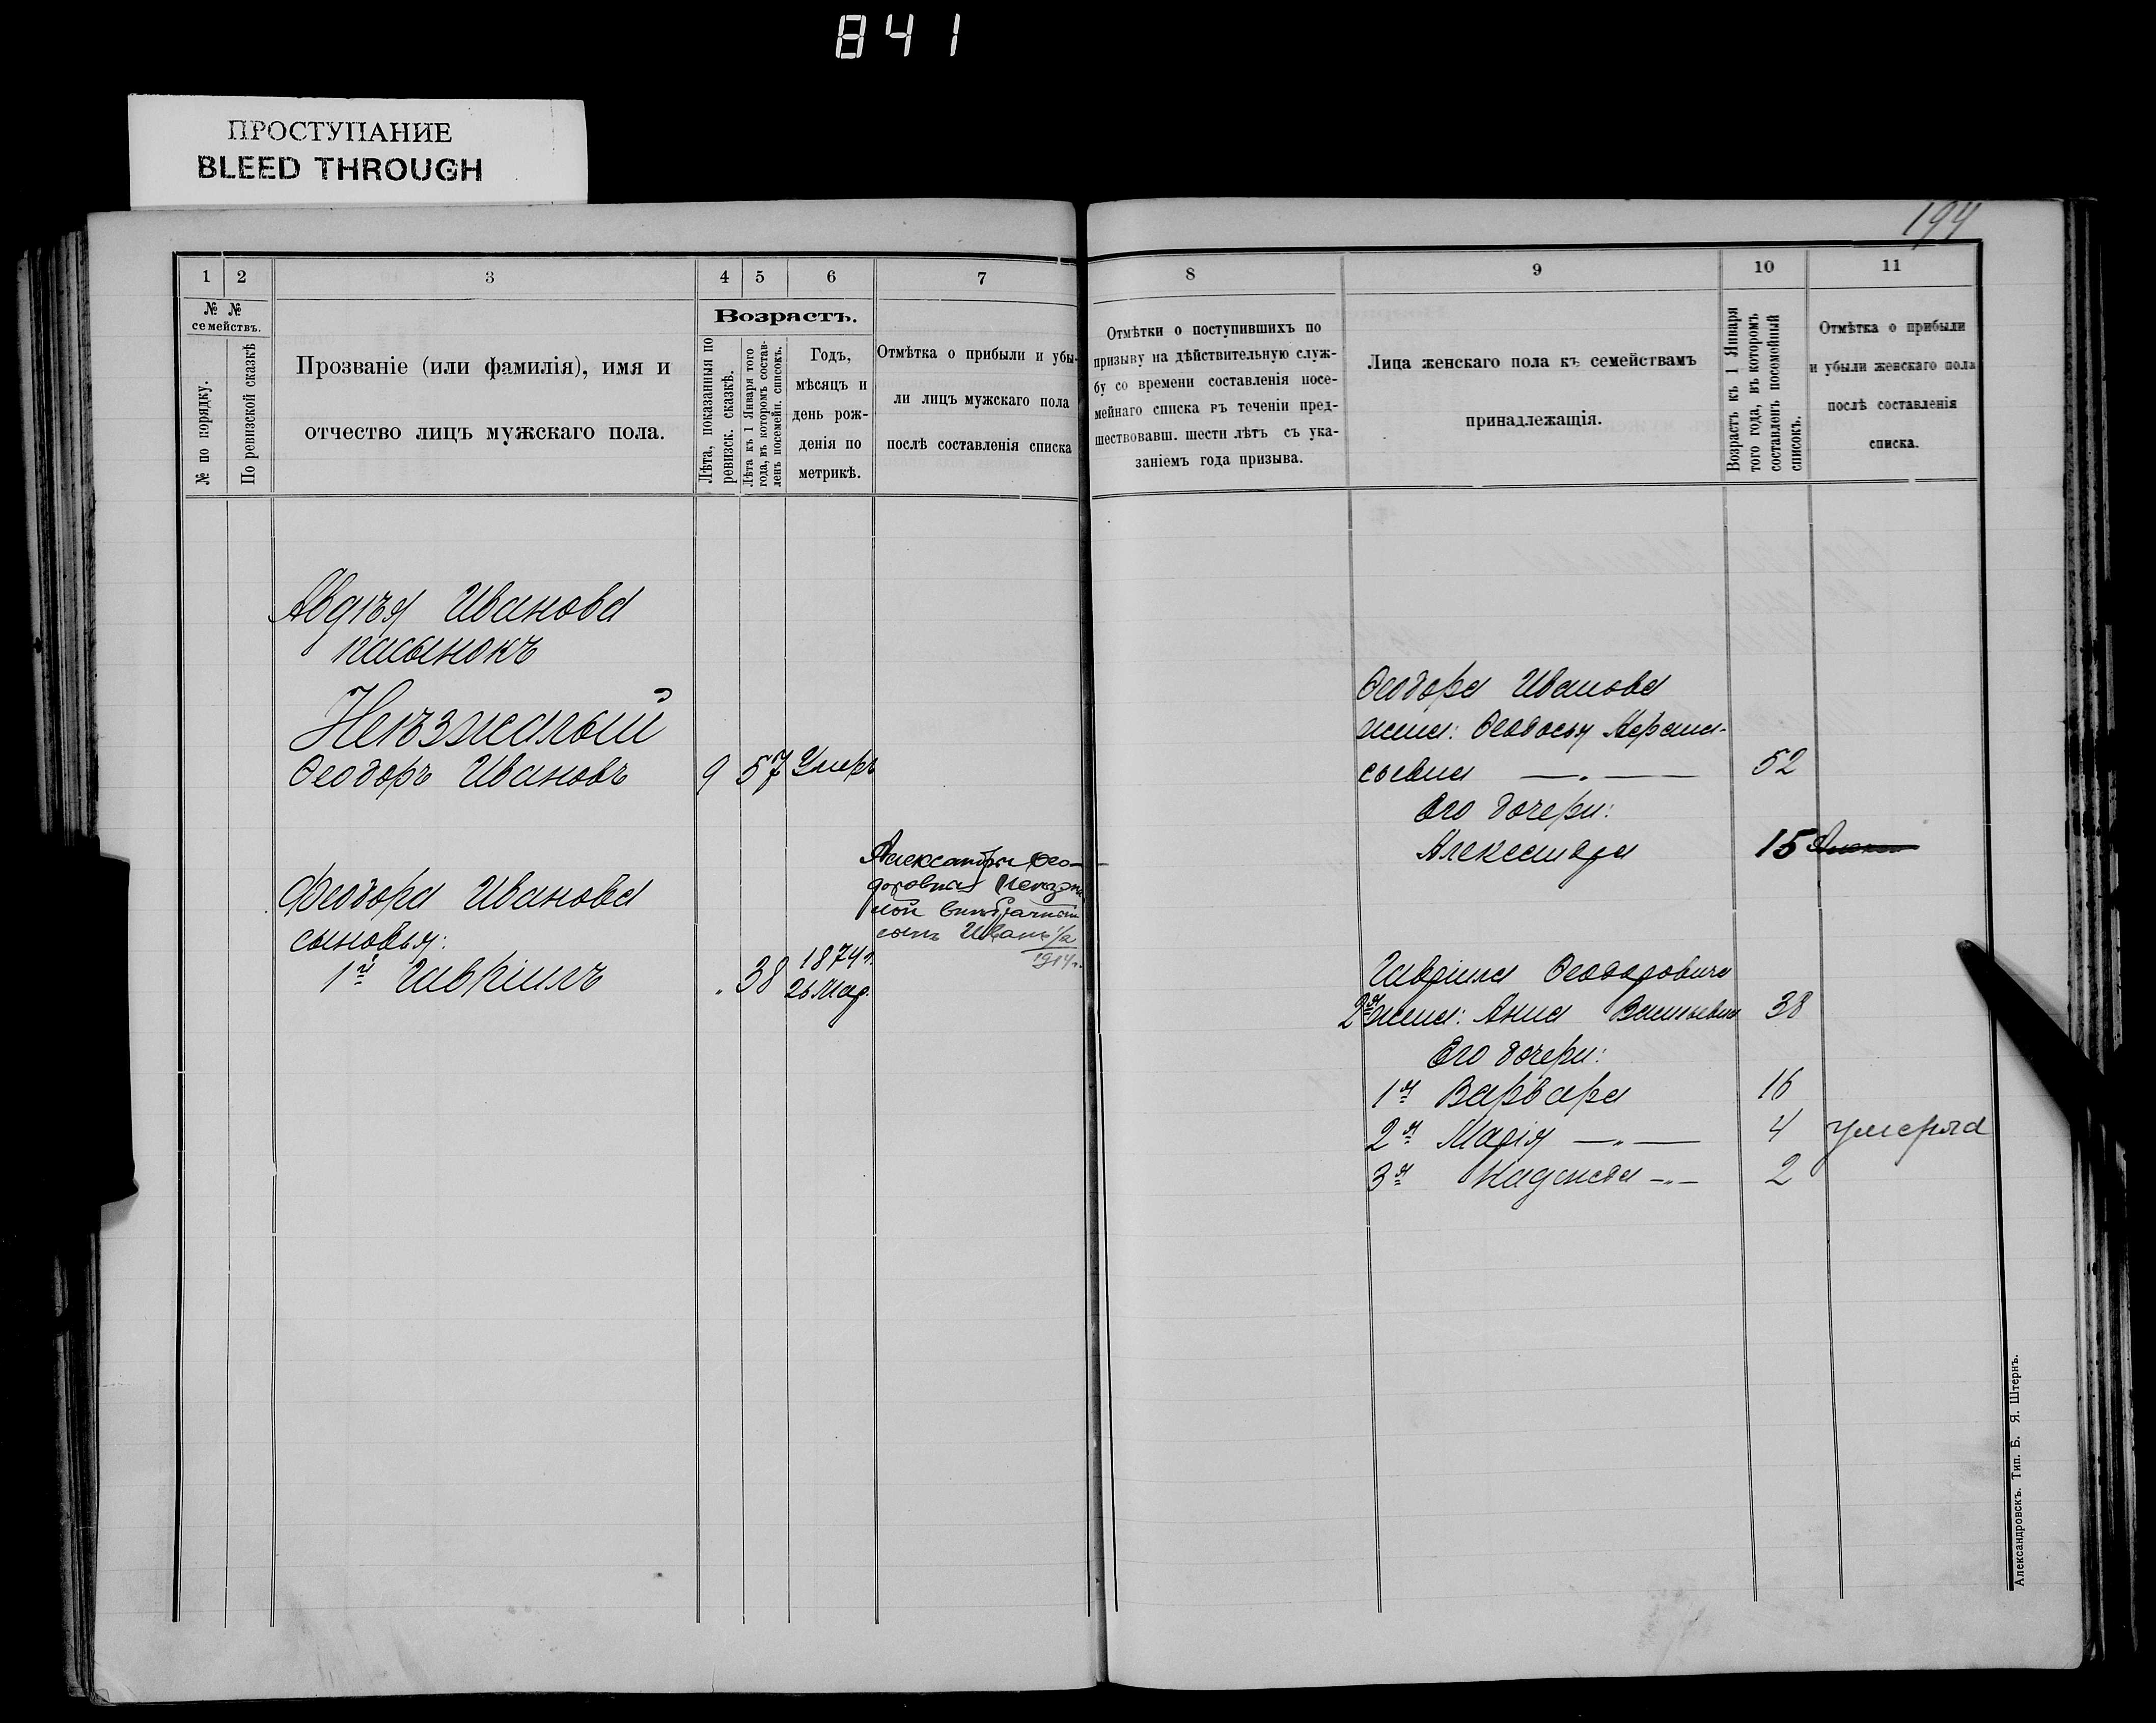 841
ПРОСТУПАНИЕ
BLEED THROUGH
194
1
2
3
4
5
6
7
№ №
семействъ.
№ по порядку.
По ревизской сказкѣ
Прозваніе (или фамилія), имя и
отчество лицъ мужскаго пола.
Возрастъ.
Лѣта, показанныя по
ревизск. сказкѣ.
Лѣта къ 1 Января того
года, въ которомъ состав-
ленъ посемейн. списокъ.
Годъ,
мѣсяцъ и
день рож-
денія по
метрикѣ.
Отмѣтка о прибыли и убы-
ли лицъ мужскаго пола
послѣ составленія списка
Авдѣя Иванова
пасынокъ
Феодоръ Ивановъ 9 57 Умеръ
Александры Фео-
доровны
сынъ Иванъ
1914г.
Феодора Иванова
сыновья:
1й Гавріилъ 38 1874г.
26 Мар.
8
9
10
11
Отмѣтки о поступившихъ по
призыву на дѣйствительную служ-
бу со времени составленія посе-
мейнаго списка въ теченіи пред-
шествовавш. шести лѣтъ съ ука-
заніемъ года призыва.
Лица женскаго пола къ семействамъ
принадлежащія.
Возрастъ къ 1 Января
того года, въ которомъ
составленъ посемейный
списокъ.
Отмѣтка о прибыли
и убыли женскаго пола
послѣ составленія
списка.
Феодора Иванова
жена: Феодосья
52
Его дочери:
Александра 15
Гавріила Феодоровича
2я жена: Анна Васильевна 38
Его дочери:
1я Варвара 16
2я Марія —„— 4 умерла
3я Надежда —„— 2
Александровскъ. Тип. Б. Я. Штернъ.